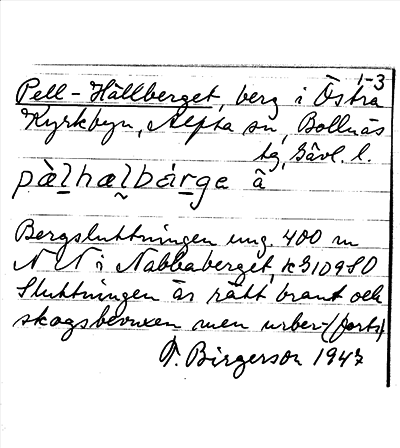 1-3
Pell-Hällberget, berg i Östra
Kyrkbyn, Alfta sn, Bollnäs
tg, Gävl. l.
pàlhalbárge â
Bergsluttningen ung. 400 m
NN i Nabbaberget, k310980
Sluttningen är rätt brant och
skogsbevuxen men urber-(forts)
T. Birgerson 1947